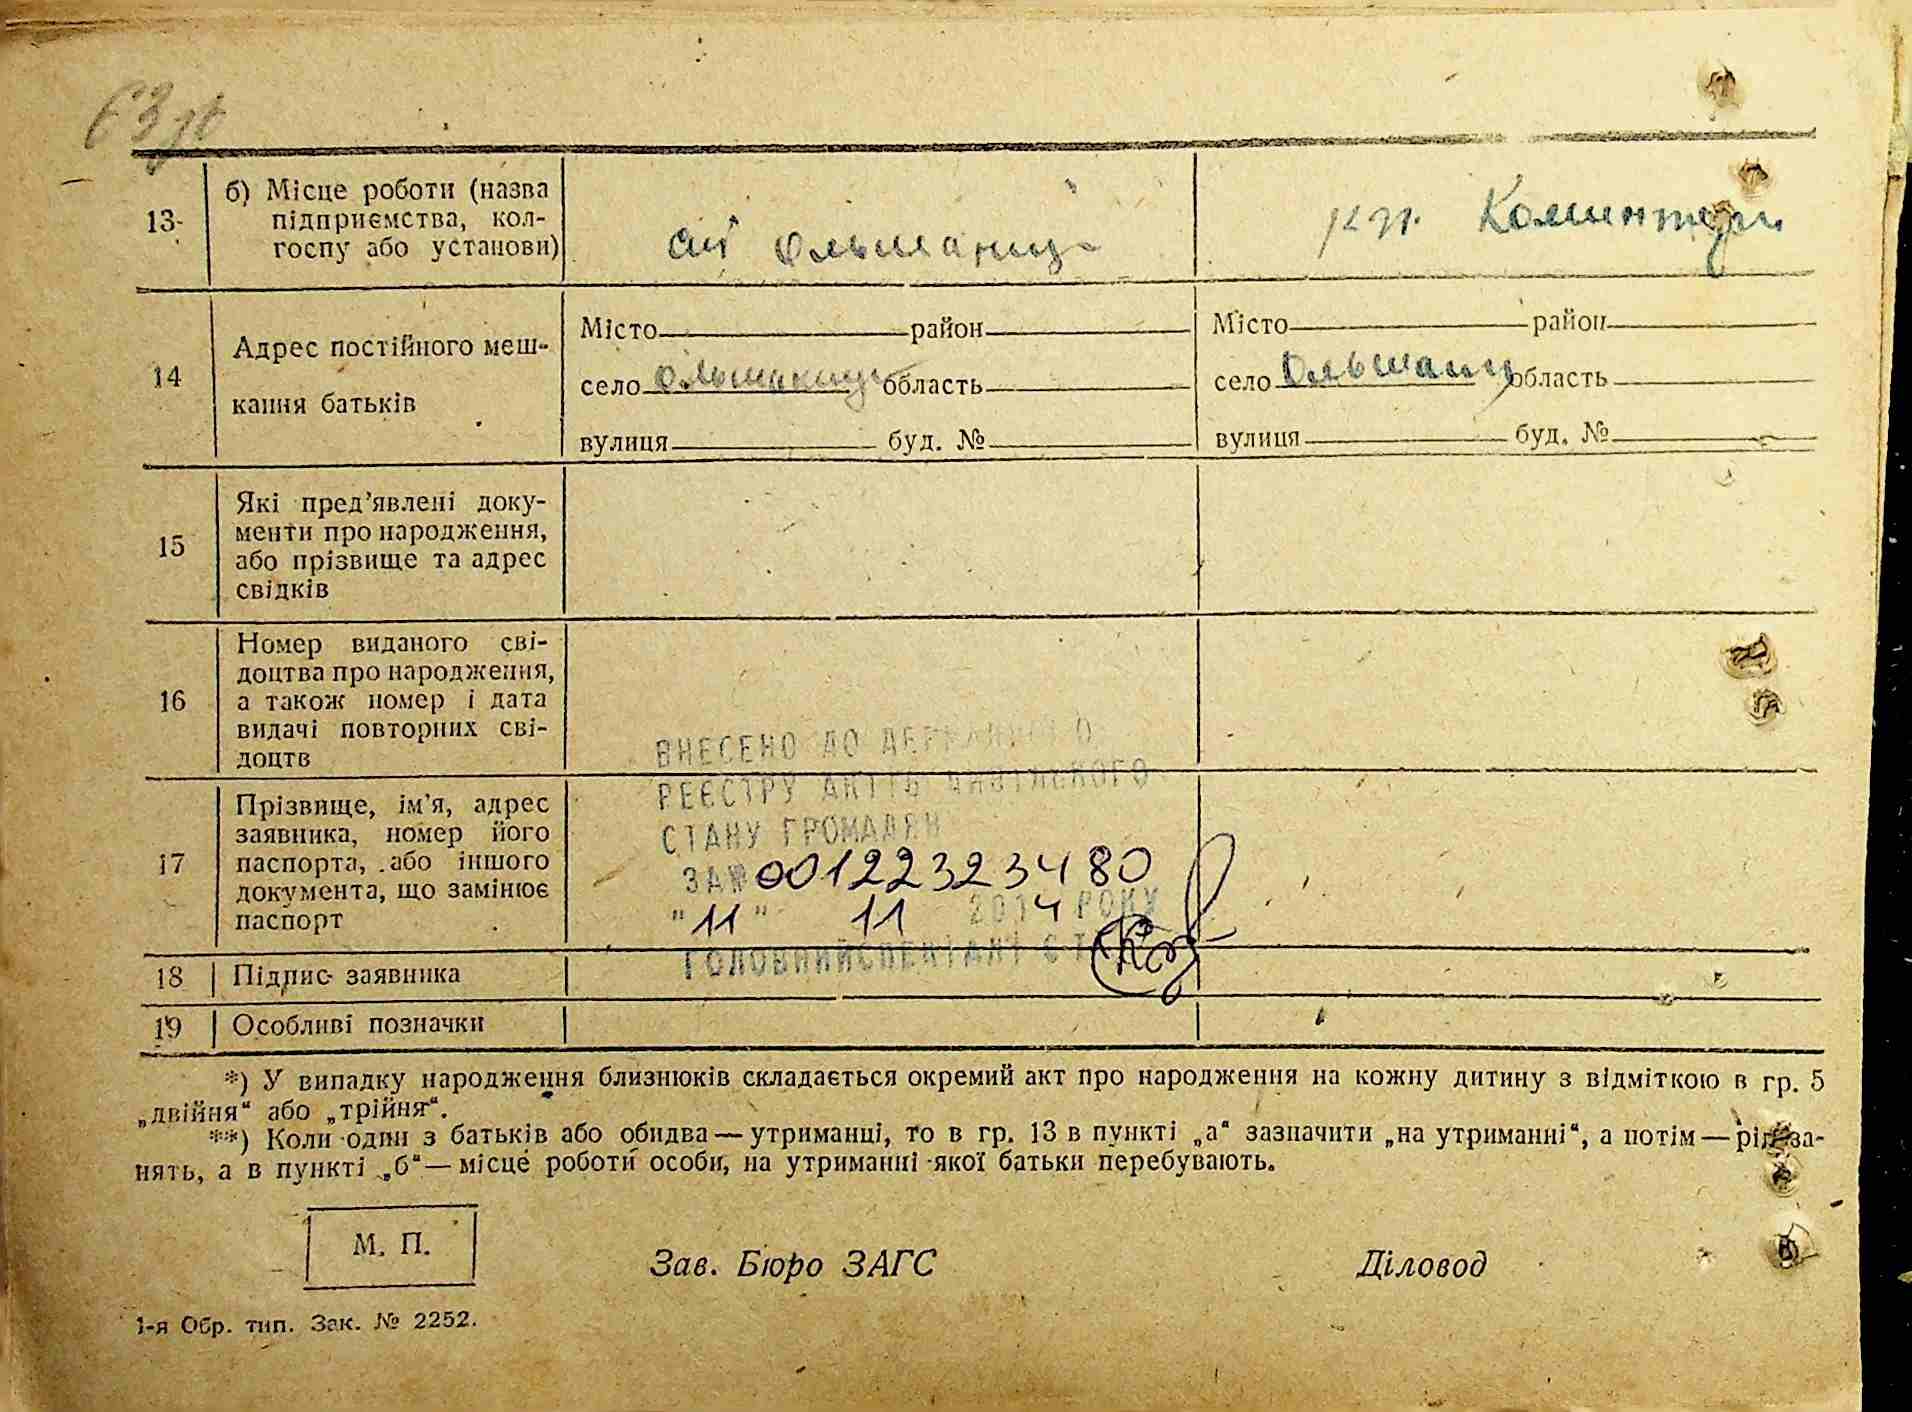 63
13
б) Місце роботи (назва
підприємства, кол-
госпу або установи)
кп. Коминтерн
14
Адрес постійного меш-
кання батьків
Місто район
село Ольшаниця область
вулиця буд. №
Місто район
село Ольшаниц область
вулиця буд. №
15
Які пред’явлені доку-
менти про народження,
або прізвище та адрес
свідків
16
Номер виданого сві-
доцтва про народження,
а також номер і дата
видачі повторних сві-
доцтв
17
Прізвище, ім’я, адрес
заявника, номер його
паспорта, або іншого
документа, що замінює
паспорт
ВНЕСЕНО ДО ДЕРЖАВНОГО
РЕЄСТРУ АКТІВ ЦИВІЛЬНОГО
СТАНУ ГРОМАДЯН
ЗА № 00122323480
"11" 11 2014 РОКУ
ГОЛОВНИЙ СПЕЦІАЛІСТ
18
Підпис заявника
19
Особливі позначки
*) У випадку народження близнюків складається окремий акт про народження на кожну дитину з відміткою в гр. 5
„двійня“ або „трійня“.
**) Коли один з батьків або обидва — утриманці, то в гр. 13 в пункті „а“ зазначити „на утриманні“, а потім — рід за-
нять, а в пункті „б“ — місце роботи особи, на утриманні якої батьки перебувають.
М. П.
Зав. Бюро ЗАГС
Діловод
1-я Обр. тип. Зак. № 2252.